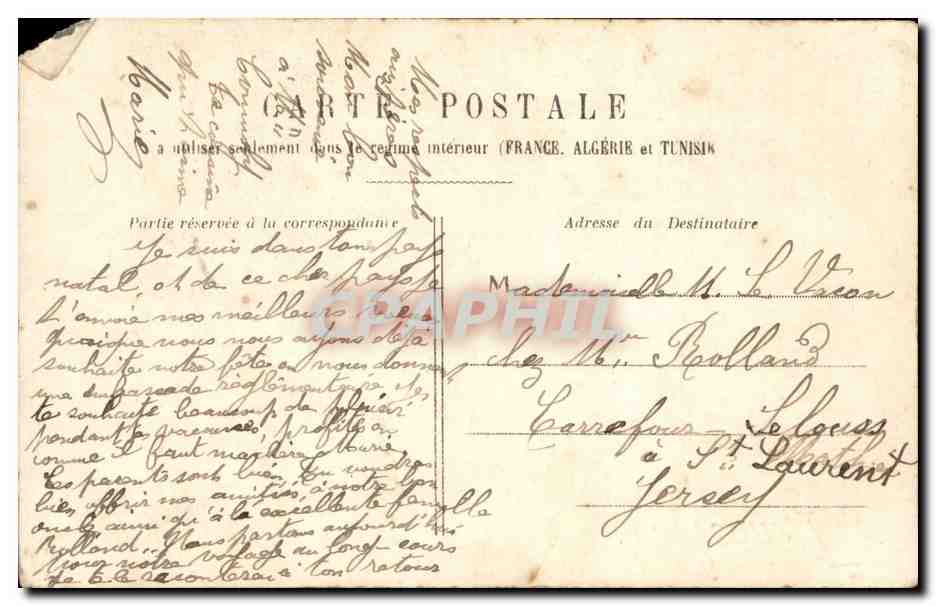 CARTE POSTALE
a utiliser seulement dans le régime intérieur (FRANCE. ALGÉRIE et TUNISIE
Partie réservée à la correspondance
Adresse du Destinataire
Je suis dans ton pays
natal, et de ce cher pays je
t'envoie mes meilleurs vœux
quoique nous nous ayons déjà
souhaité notre fête en nous donnant
une embrassade réglémentaire je
te souhaite beaucoup de plaisir
pendant tes vacances, profites en
comme il faut ma chère Marie
Tes parents sont bien, tu voudras
bien offrir mes amitiés, à notre bon
oncle ainsi qu'à la excellente famille
Rolland.. Nous partons aujourd'hui
pour notre voyage au long-cours
je te le raconterai à ton retour
Mes respects
aux frères
Mon bon
souvenir
à
Ta cousine
qui t'aime
Marie
Mademoiselle M. Le Vacon
chez Mr Rolland
Carrefour - Selous
à St Laurent
Jersey
CPAPHIL